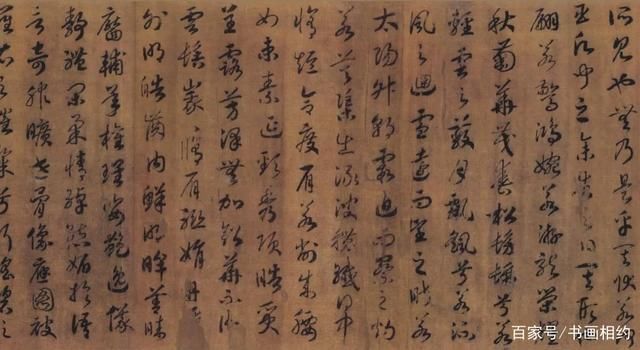 所見也無乃是乎其狀若
臣願聞之余告之曰其形
翩若驚鴻婉若游龍榮
秋菊華茂春松髣髴兮若
輕雲之蔽月飄颻兮若流
風之迴雪遠而望之皎若
太陽升朝霞迫而察之灼
若芙蕖出淥波穠纖得中
脩短合度肩若削成腰
如束素延頸秀項皓質
呈露芳澤無加鉛華不御
雲髻峩峩脩眉聯娟丹唇
外朗皓齒內鮮明眸善睞
靨輔承權瓌姿艷逸儀
靜體閑柔情綽態媚於語
言奇服曠世骨像應圖被
羅衣之璀粲兮珥瑤碧之
百家号/书画相约